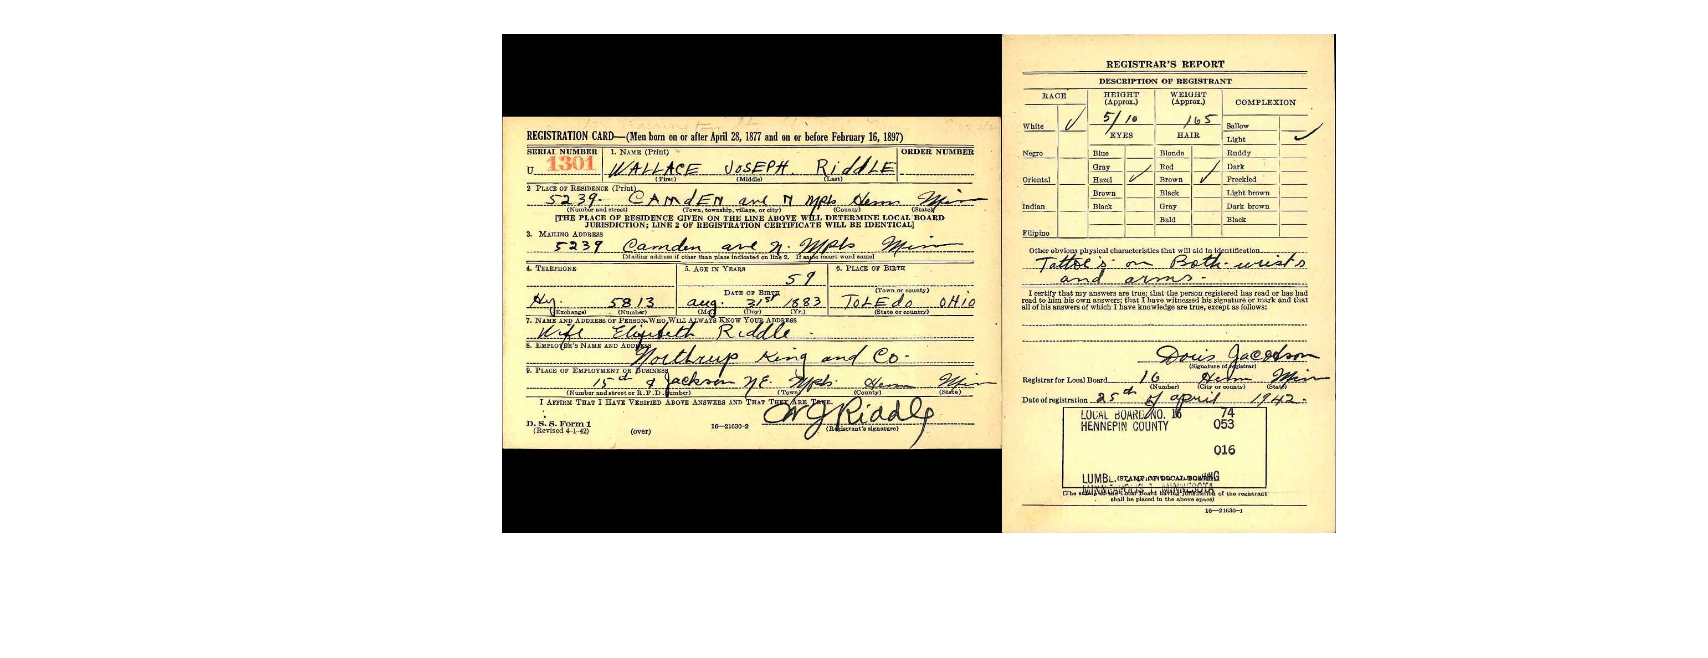 REGISTRATION CARD—(Men born on or after April 28, 1877 and on or before February 16, 1897)
SERIAL NUMBER 1. NAME (Print) ORDER NUMBER
U 1301 WALLACE JOSEPH. RiddLE
(First) (Middle) (Last)
2 PLACE OF RESIDENCE (Print)
5239. CAMdEN ave N Mpls Henn Minn
(Number and street) (Town, township, village, or city) (County) (State)
[THE PLACE OF RESIDENCE GIVEN ON THE LINE ABOVE WILL DETERMINE LOCAL BOARD
JURISDICTION; LINE 2 OF REGISTRATION CERTIFICATE WILL BE IDENTICAL]
3. MAILING ADDRESS
5239 Camden ave N. Mpls Minn
[Mailing address if other than place indicated on line 2. If same insert word same]
4. TELEPHONE 5. AGE IN YEARS 6. PLACE OF BIRTH
59
DATE OF BIRTH (Town or county)
Hy. 5813 aug. 31st 1883 TOLEdo OHio
(Exchange) (Number) (Mo.) (Day) (Yr.) (State or country)
7. NAME AND ADDRESS OF PERSON WHO WILL ALWAYS KNOW YOUR ADDRESS
Wife Elizabeth Riddle
8. EMPLOYER'S NAME AND ADDRESS
Northrup King and Co.
9. PLACE OF EMPLOYMENT OR BUSINESS
15th & Jackson NE. Mpls. Henn Minn
(Number and street or R. F. D. number) (Town) (County) (State)
I AFFIRM THAT I HAVE VERIFIED ABOVE ANSWERS AND THAT THEY ARE TRUE.
WJ Riddle
D. S. S. Form 1
(Revised 4-1-42) (over) 16—21630-2 (Registrant's signature)
REGISTRAR'S REPORT
DESCRIPTION OF REGISTRANT
RACE HEIGHT (Approx.) WEIGHT (Approx.) COMPLEXION
5/10 165
White ✓ EYES HAIR Sallow
Light ✓
Negro Blue Blonde Ruddy
Gray Red Dark
Oriental Hazel ✓ Brown ✓ Freckled
Brown Black Light brown
Indian Black Gray Dark brown
Bald Black
Filipino
Other obvious physical characteristics that will aid in identification
Tattoe's on Both wrists
and arms.
I certify that my answers are true; that the person registered has read or has had
read to him his own answers; that I have witnessed his signature or mark and that
all of his answers of which I have knowledge are true, except as follows:
Doris Jacobson
(Signature of registrar)
Registrar for Local Board 16 Henn Minn
(Number) (City or county) (State)
Date of registration 25th of april 1942.
LOCAL BOARD NO. 16 74
HENNEPIN COUNTY 053
016
(STAMP OF LOCAL BOARD)
MINNEAPOLIS 1, MINNESOTA
(The stamp of the Local Board having jurisdiction of the registrant
shall be placed in the above space)
16—21630-1